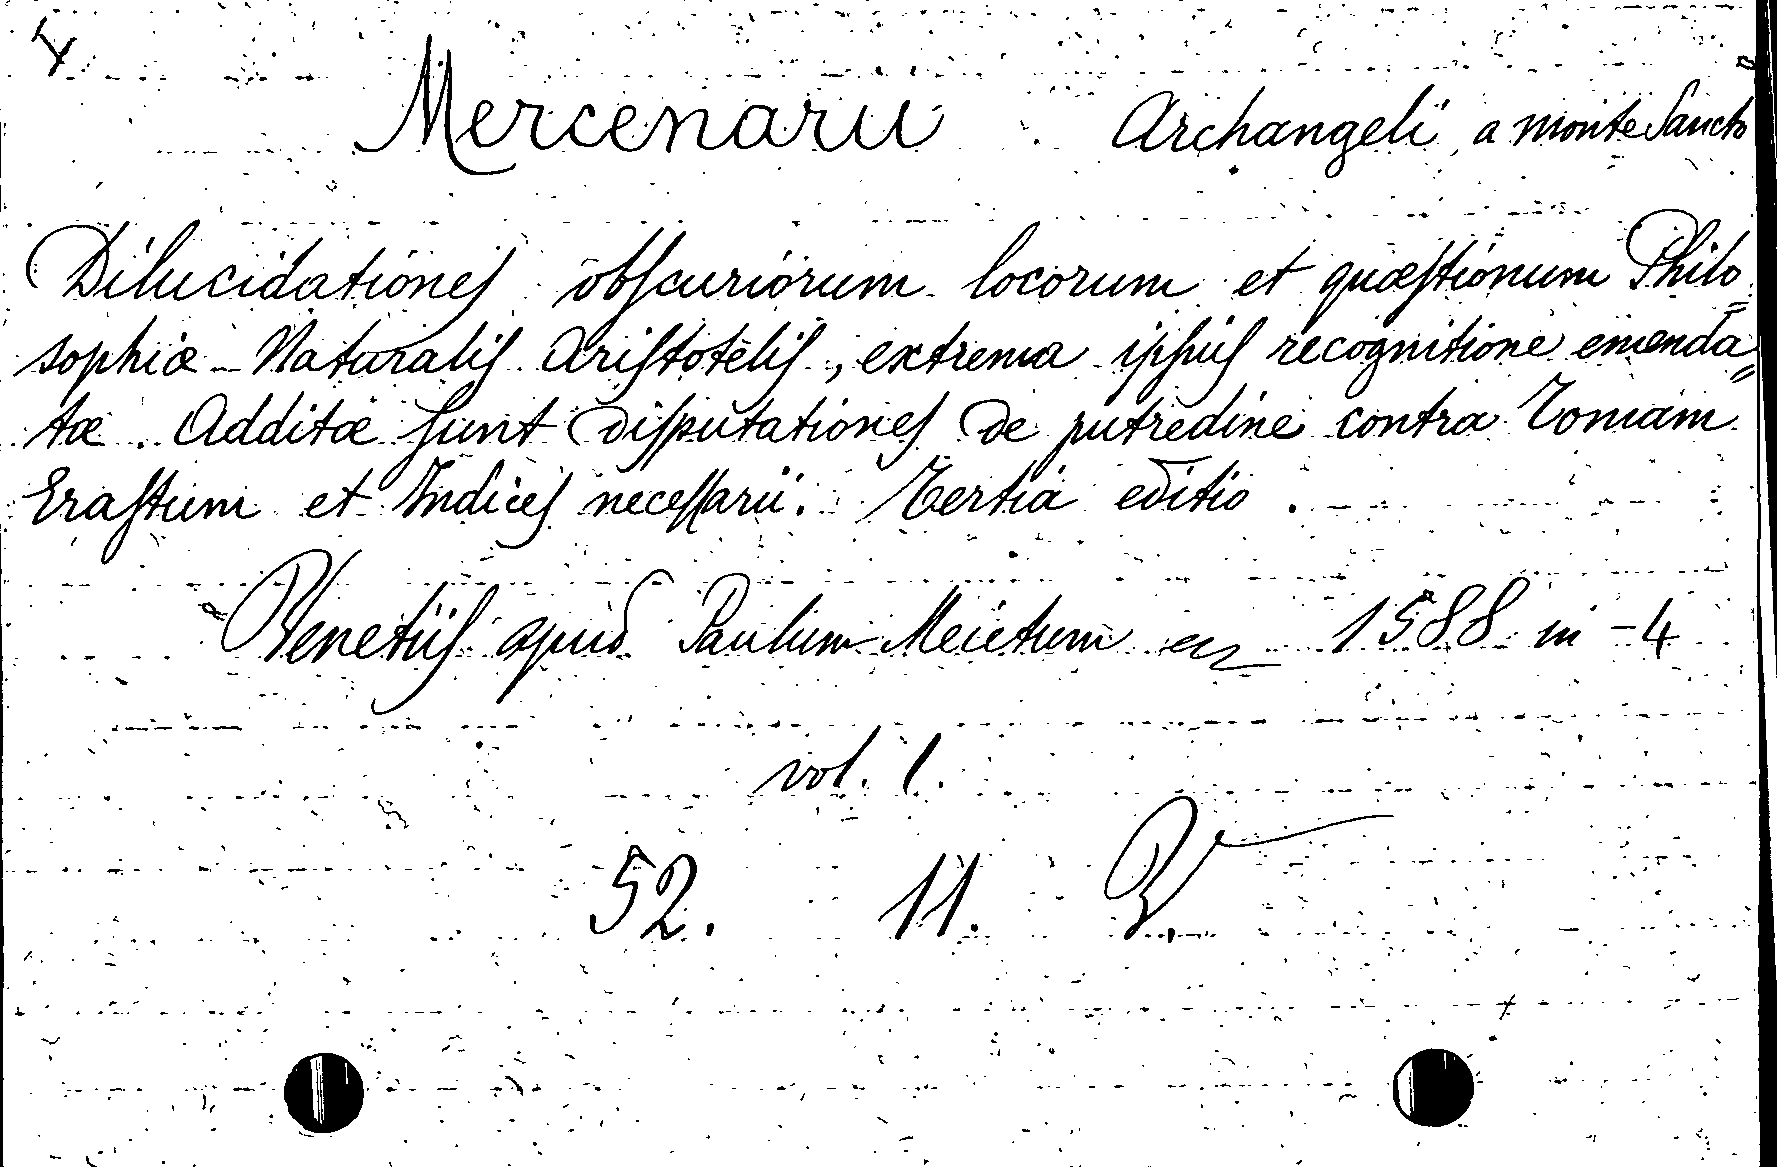 Mercenarii Archangeli a monte Sancto
Dilucidationes obscuriorum locorum et quæstionum Philo=
sophiæ Naturalis Aristotelis, extrema ipsius recognitione emenda=
tæ. Additæ sunt disputationes de putredine contra Tomam
Erastum et Indices necessarii. Tertia editio.
Venetiis apud Paulum Meietum 1588 in-4
vol. 1.
52. 11.